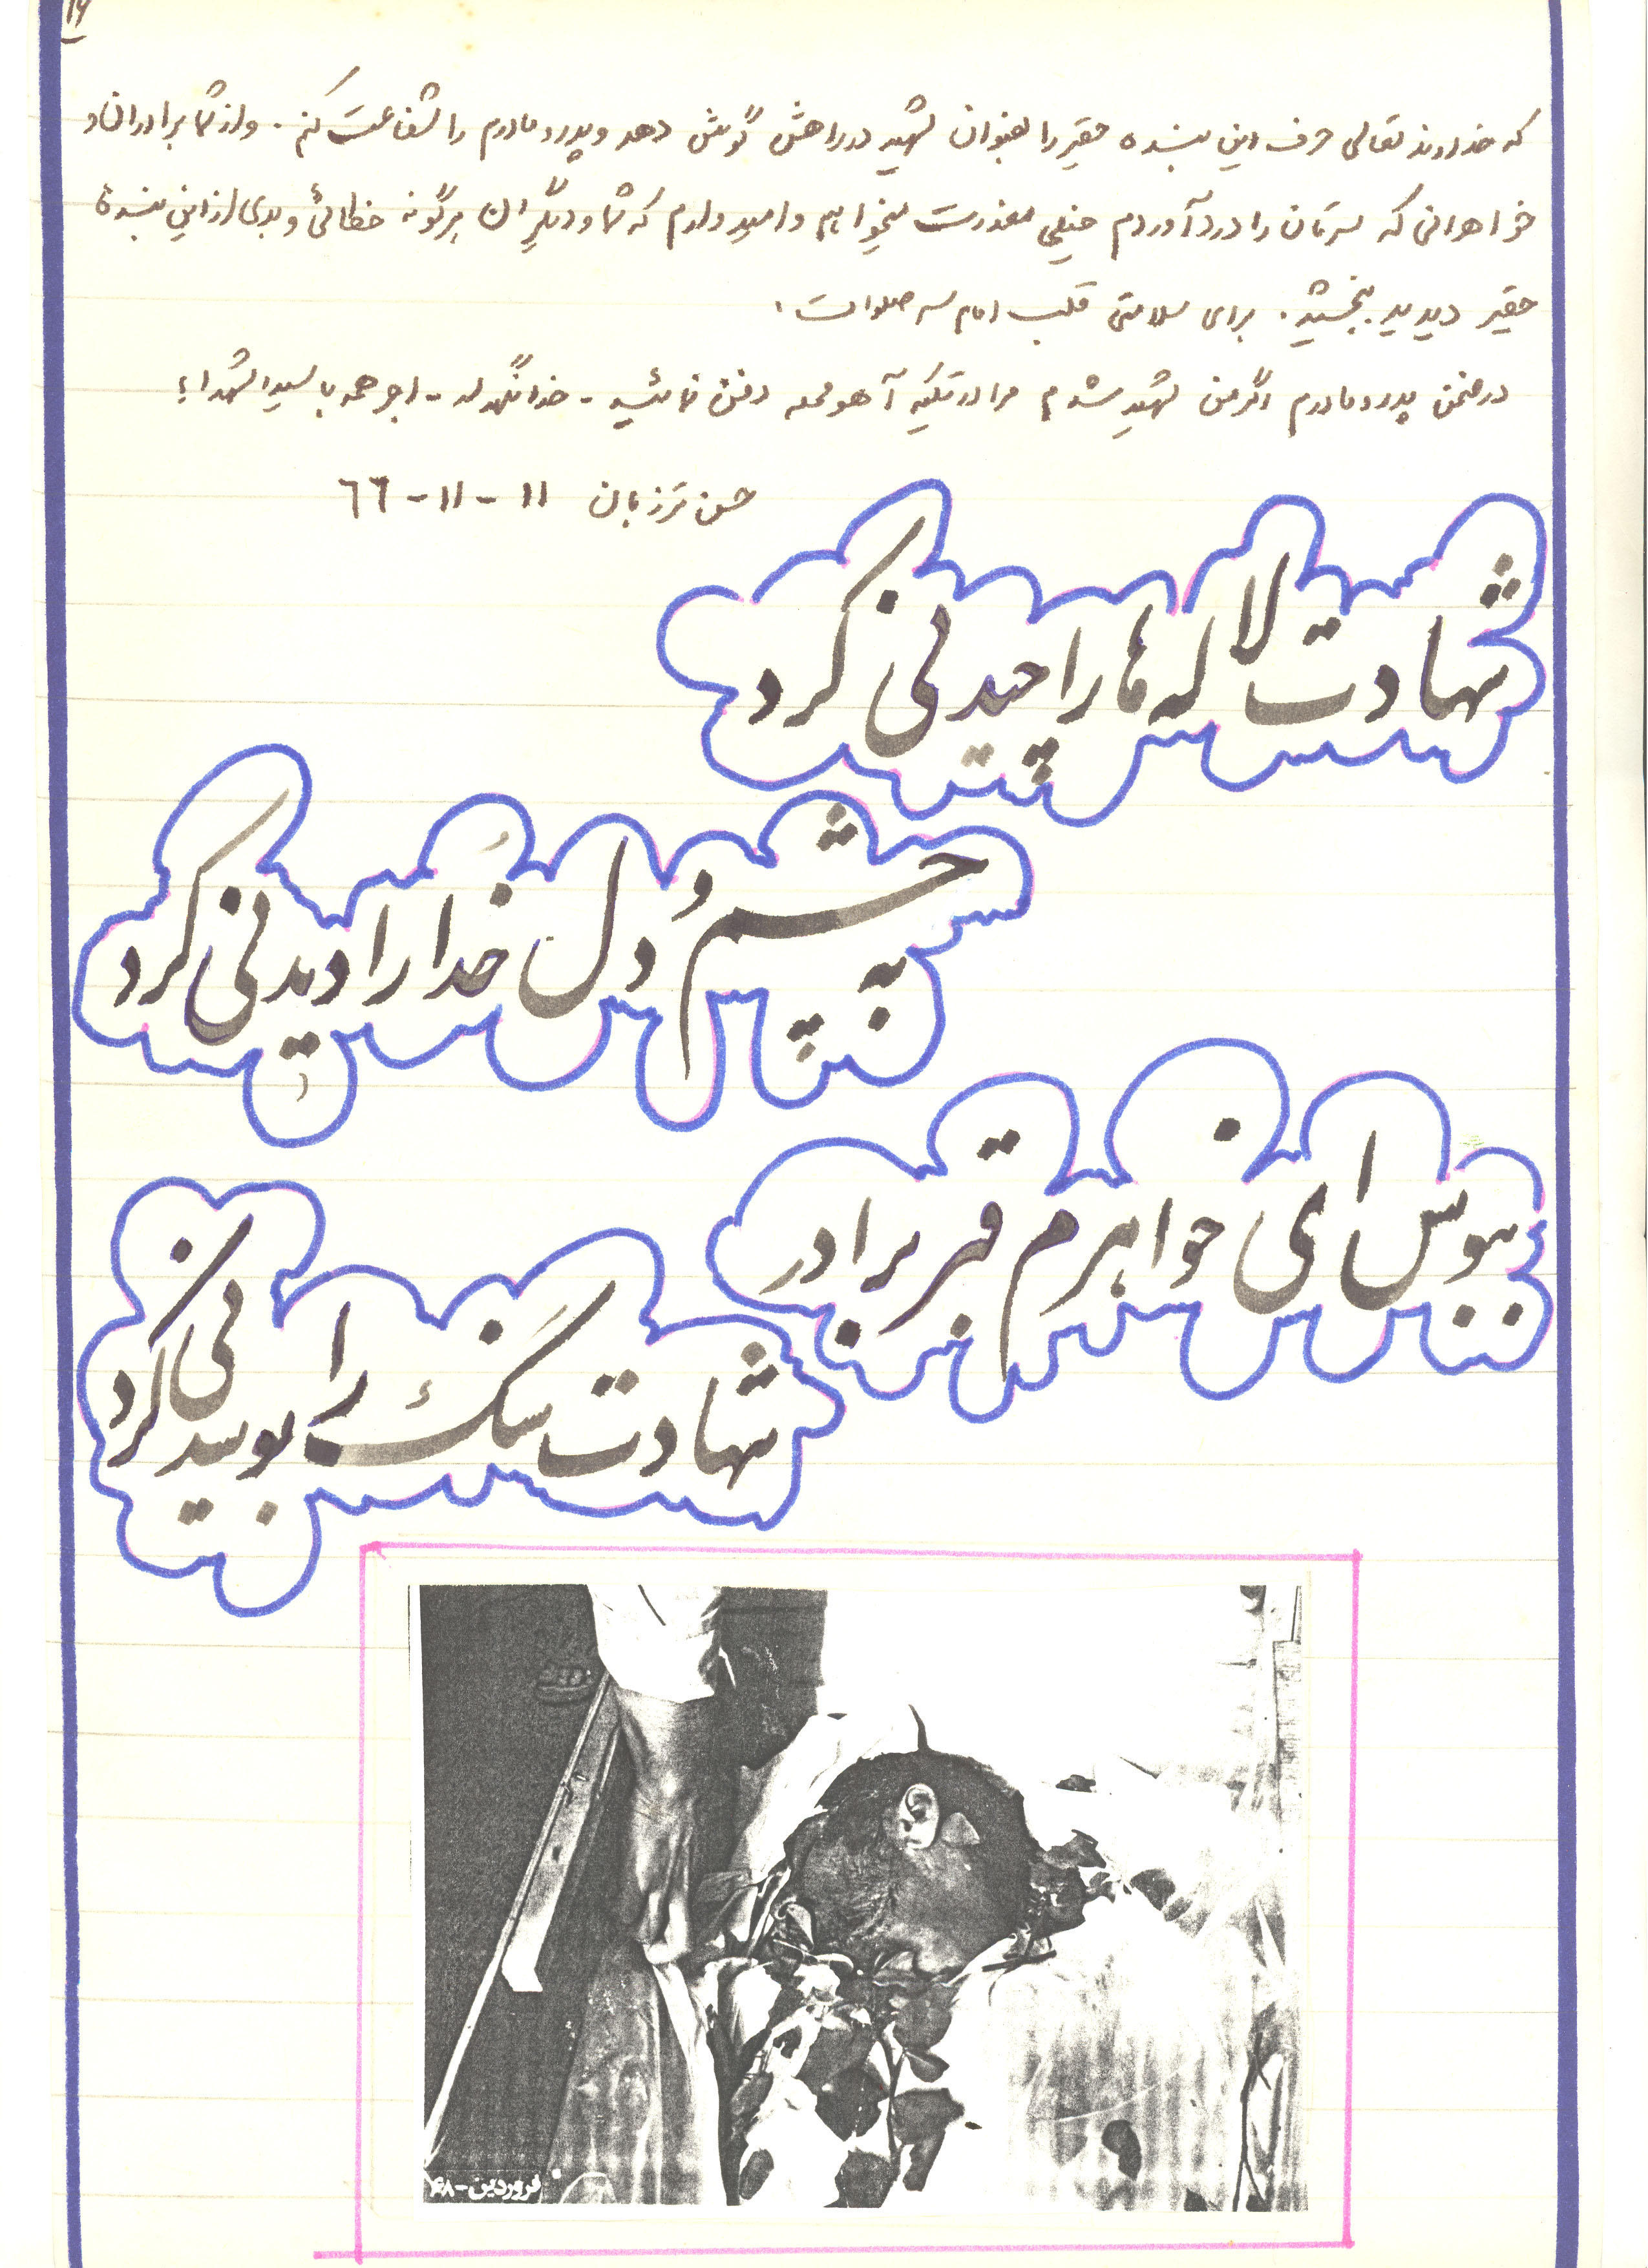 ۱۶
که خداوند تعالی حرف این بنده حقیر را بعنوان شهید در راهش گوش دهد و پدر و مادرم را شفاعت کنم. و از شما برادران و
خواهرانی که سرتان را درد آوردم خیلی معذرت میخواهم و امیدوارم که شما و دیگران هرگونه خطائی و بدی از این بنده
حقیر دیدید ببخشید. برای سلامتی قلب امام سه صلوات.
در ضمن پدر و مادرم اگر من شهید شدم مرا در تکیه آهو محله دفن نمائید - خدانگهدار - اجر همه با سیدالشهداء!
حسن ترزبان ۱۱-۱۱-۶۶
شهادت لاله ها را چیدنی کرد
به چشم و دل خدا را دیدنی کرد
ببوس ای خواهرم قبر برادر
شهادت سنگ را بوسیدنی کرد
فروردین-۶۸